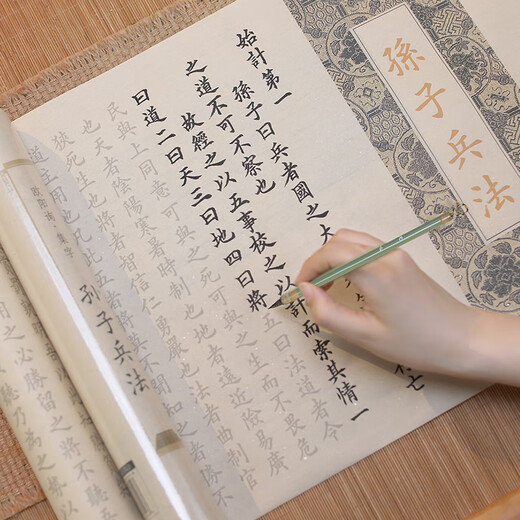 孫子兵法
始計第一
孫子曰兵者國之大亡
之道不可不察也
故經之以五事校之以計而索其情一
曰道二曰天三曰地四曰將五曰法道者令
民與上同意可與之死可與之生而不畏危
也天者陰陽寒暑時制也地者遠近險易廣
狹死生也將者智信仁勇嚴也法者曲制官
道主用也凡此五者將莫不聞知之者勝不
孫子兵法
之必勝留之將不聽
聽乃為之勢以